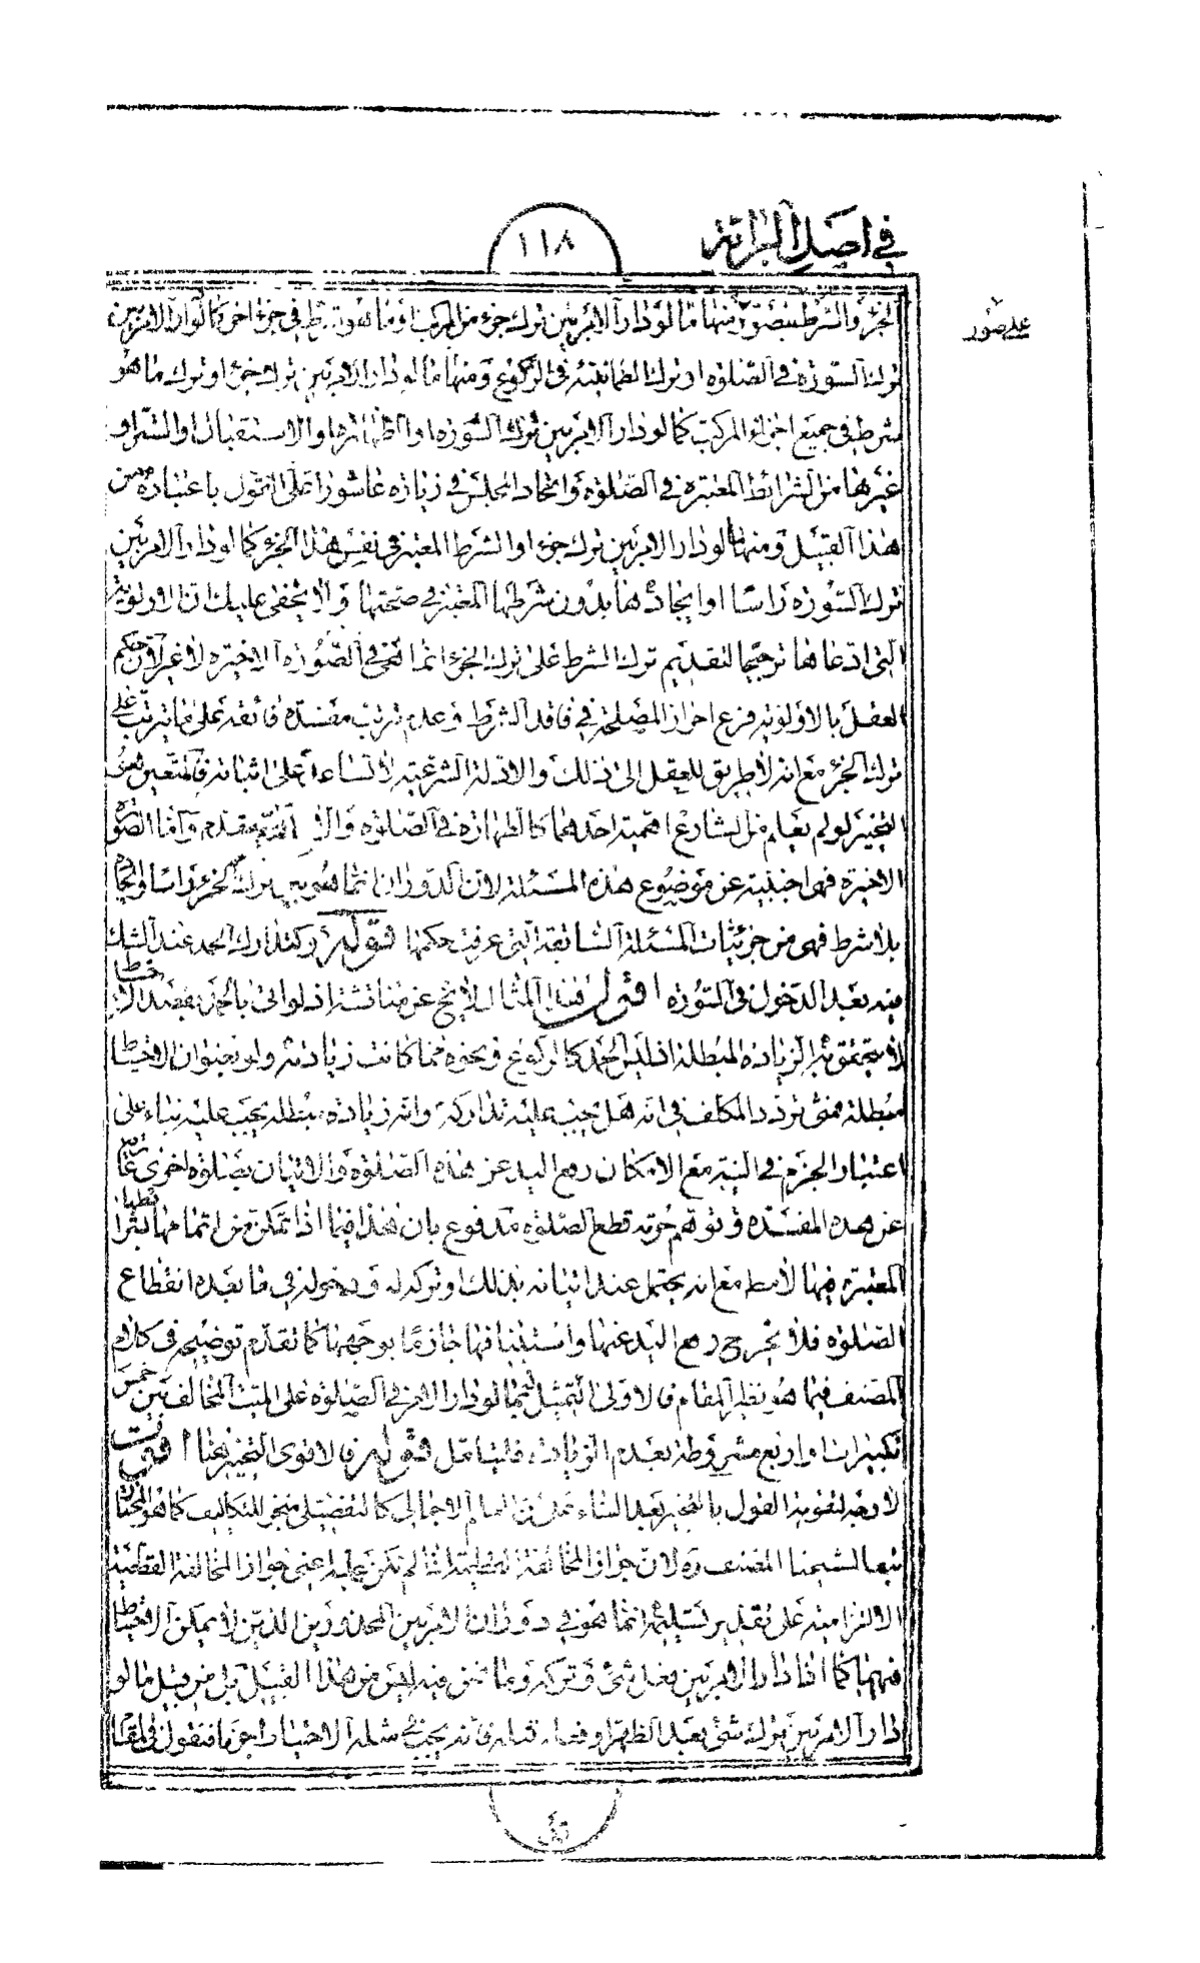 في اصل البرائة
١١٨
الجزء والشرط يتصور منها ما لو دار الامر بين ترك جزء من المركب وما هو شرط في جزء اخر كما لو دار الامر بين
على صور
ترك السورة في الصلوة او ترك الطمانينة في الركوع ومنها ما لو دار الامر بين ترك جزء او ترك ما هو
شرط في جميع اجزاء المركب كما لو دار الامر بين ترك السورة او الطهارة او الاستقبال او الستر او
غيرها من الشرائط المعتبرة في الصلوة واتحاد المجلس في زيارة عاشورا على القول باعتباره من
هذا القبيل ومنها ما لو دار الامر بين ترك جزء او الشرط المعتبر في نفس هذا الجزء كما لو دار الامر بين
ترك السورة راسا او ايجادها بدون شرطها المعتبر في صحتها ولا يخفى عليك ان الاولوية
التي ادعاها ترجيحا لتقديم ترك الشرط على ترك الجزء انما هي في الصورة الاخيرة لا غير لان حكم
العقل بالاولوية فرع احراز المصلحة في فاقد الشرط وعدم ترتب مفسدة فائقة على ما يترتب على
ترك الجزء مع انه لا طريق للعقل الى ذلك والادلة الشرعية لا تساعد على اثباته فالمتعين هو
التخيير لو لم يعلم من الشارع اهمية احدهما كالطهارة في الصلوة والا فالاهم مقدم واما الصورة
الاخيرة فهي اجنبية عن موضوع هذه المسئلة لان الدوران انما هو بين ترك الجزء راسا وايجاده
بلا شرط فهي من جزئيات المسئلة السابقة التي عرفت حكمها قوله ره كتدارك الحمد عند الشك
فيه بعد الدخول في السورة اقول هذا المثال لا يخ عن مناقشة اذ لو اتى بالحمد بقصد الاحتياط
لا يتحقق به الزيادة المبطلة اذ ليس الحمد كالركوع ونحوه مما كانت زيادته ولو بعنوان الاحتياط
مبطلة فمتى تردد المكلف في انه هل يجب عليه تداركه او انه زيادة مبطلة يجب عليه بناء على
اعتبار الجزم في النية مع الامكان رفع اليد عن هذه الصلوة والاتيان بصلوة اخرى عارية
عن هذه المفسدة وتوهم حرمة قطع الصلوة مدفوع بان هذا فيما اذا تمكن من اتمامها بشرائطها
المعتبرة فيها لا مط مع انه يحتمل عند اتيانه بذلك او تركه له ودخوله في ما بعده انقطاع
الصلوة فلا يحرم ح رفع اليد عنها واستينافها جازما بوجهها كما تقدم توضيحه في كلام
المصنف فيما هو نظير المقام فالاولى التمثيل بما لو دار الامر في الصلوة على الميت المخالف بين خمس
تكبيرات او اربع مشروطة بعدم الزيادة فليتامل قوله ره فالاقوى التخيير هنا اقول
لا وجه لتقوية القول بالتخيير بعد البناء على ان العلم الاجمالي كالتفصيلي منجز للتكاليف كما هو المختار
تبعا لشيخنا المصنف ره لان جواز المخالفة القطعية اذا لم يكن عليه اعني جواز المخالفة القطعية
الالتزامية على تقدير تسليمه انما هو في دوران الامر بين المحذورين الذين لا يمكن الاحتياط
فيهما كما اذا دار الامر بين فعل شئ وتركه وما نحن فيه ليس من هذا القبيل بل من قبيل ما لو
دار الامر بين ترك شئ بعد الظهر او فعله قبله فانه يجب في مثله الاحتياط جزما فنقول في المقام